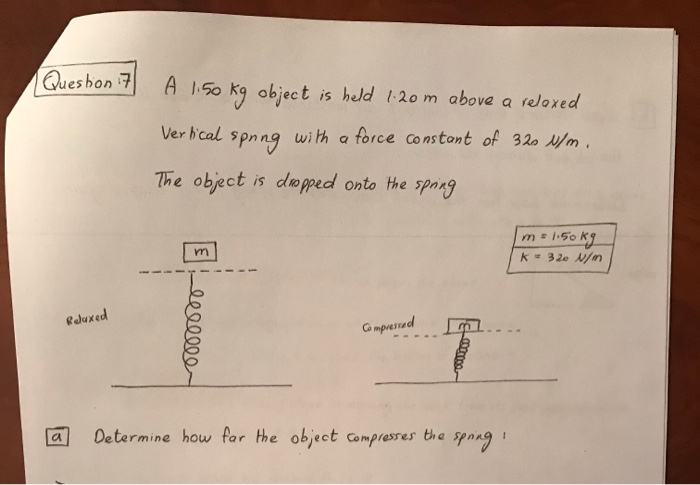 Question 7
A 1.50 kg object is held 1.20 m above a relaxed
Vertical spring with a force constant of 320 N/m.
The object is dropped onto the spring
m = 1.50 kg
K = 320 N/m
m
Relaxed
Compressed
m
a Determine how far the object compresses the spring: